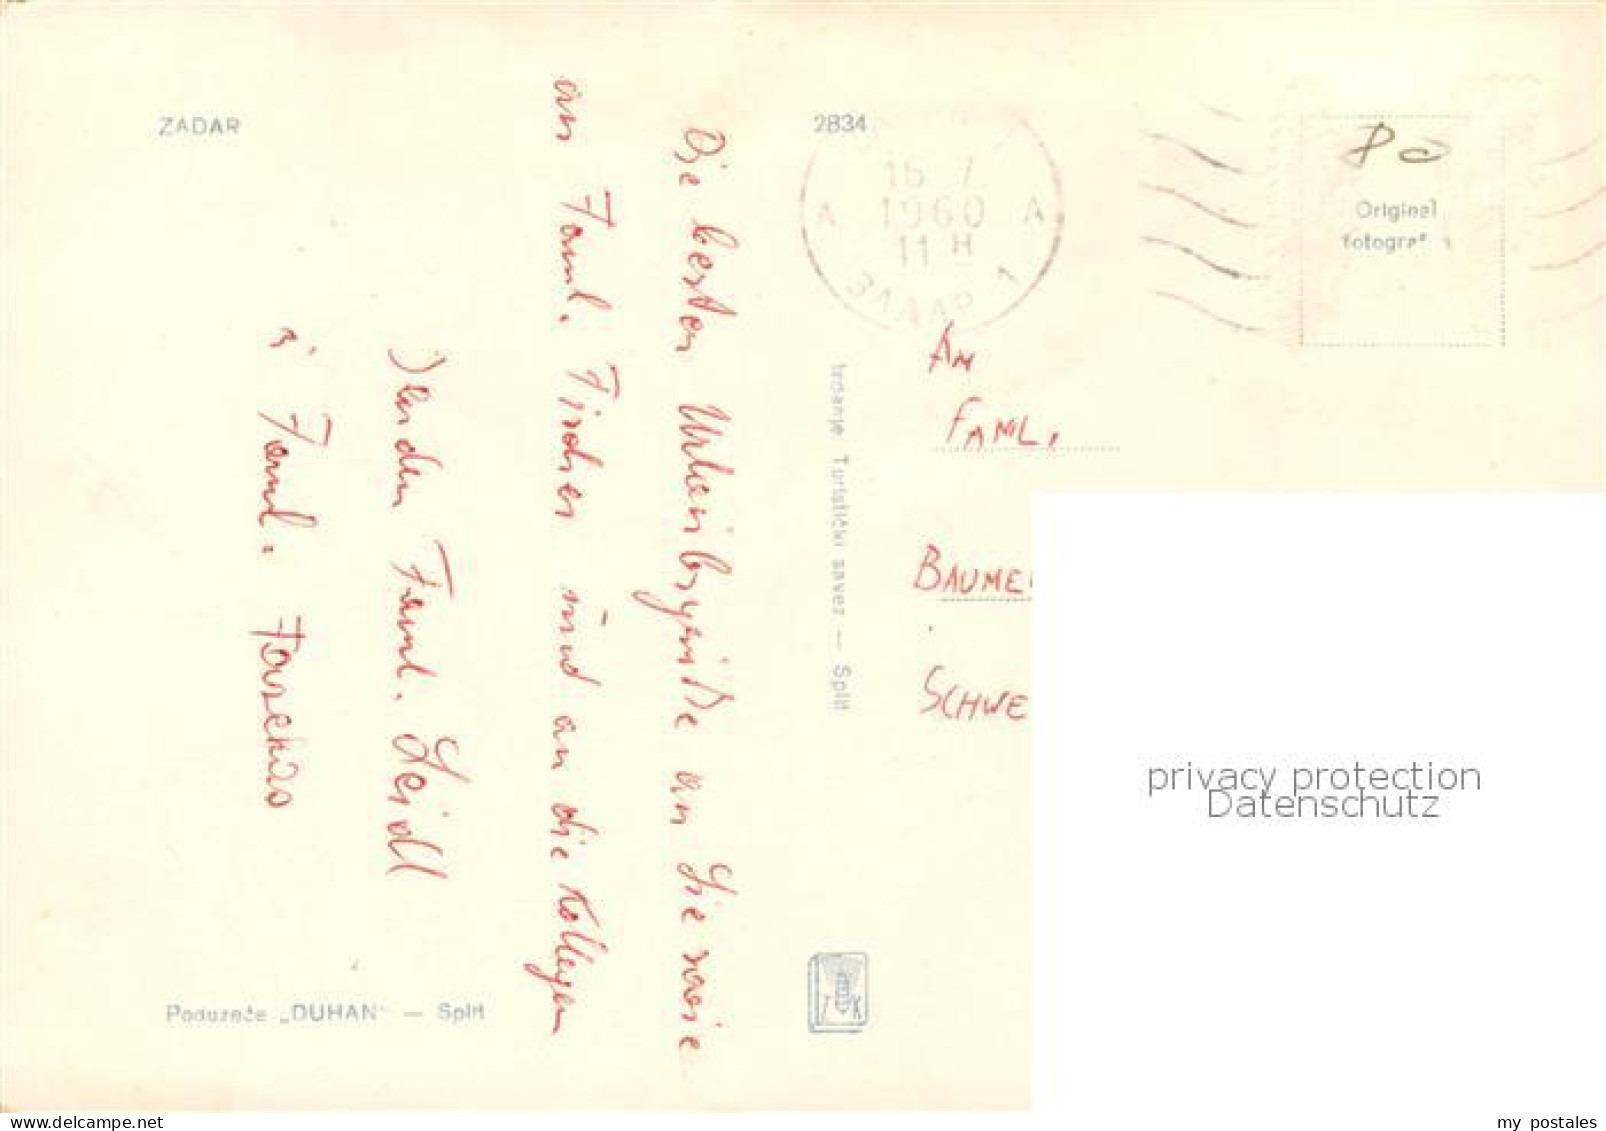 ZADAR
2834
16 7
1960
11 H
A A
ЗАДАР 1
Original
fotograf
Die besten Urlaubsgrüße an Sie sowie
an Faml. Fischer und an die Kollegen
Senden Faml. Seidl
Faml.
Izdanje Turistički savez — Split
AN
FAML.
BAUME
SCHWE
Poduzeće „DUHAN" — Split
privacy protection
Datenschutz
www.delcampe.net
my postales